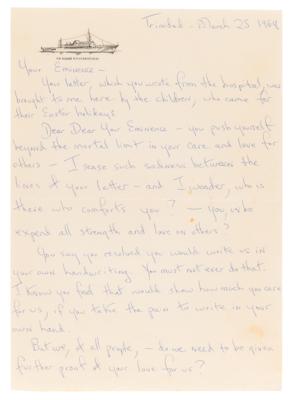 Trinidad - March 25 1968
Your Eminence -
You letter, which you wrote from the hospital, was
brought to me here by the children, who came for
their Easter holidays
Dear Dear Your Eminence - you push yourself
beyond the mortal limit in your care and love for
others - I sense such sadness between the
lines of your letter - and I wonder, who is
there who comforts you? - you, who
expend all strength and love on others?
You say you resolved you would write us in
your own handwriting. You must not ever do that.
I know you feel that would show how much you care
for us, if you take the pain to write in your
own hand.
But we, of all people, - do we need to be given
further proof of your love for us?